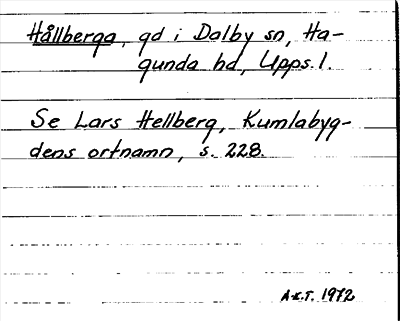 Hållberga, gd i Dalby sn, Ha-
gunda hd, Upps. l.
Se Lars Hellberg, Kumlabyg-
dens ortnamn, s. 228.
A-K.T. 1972